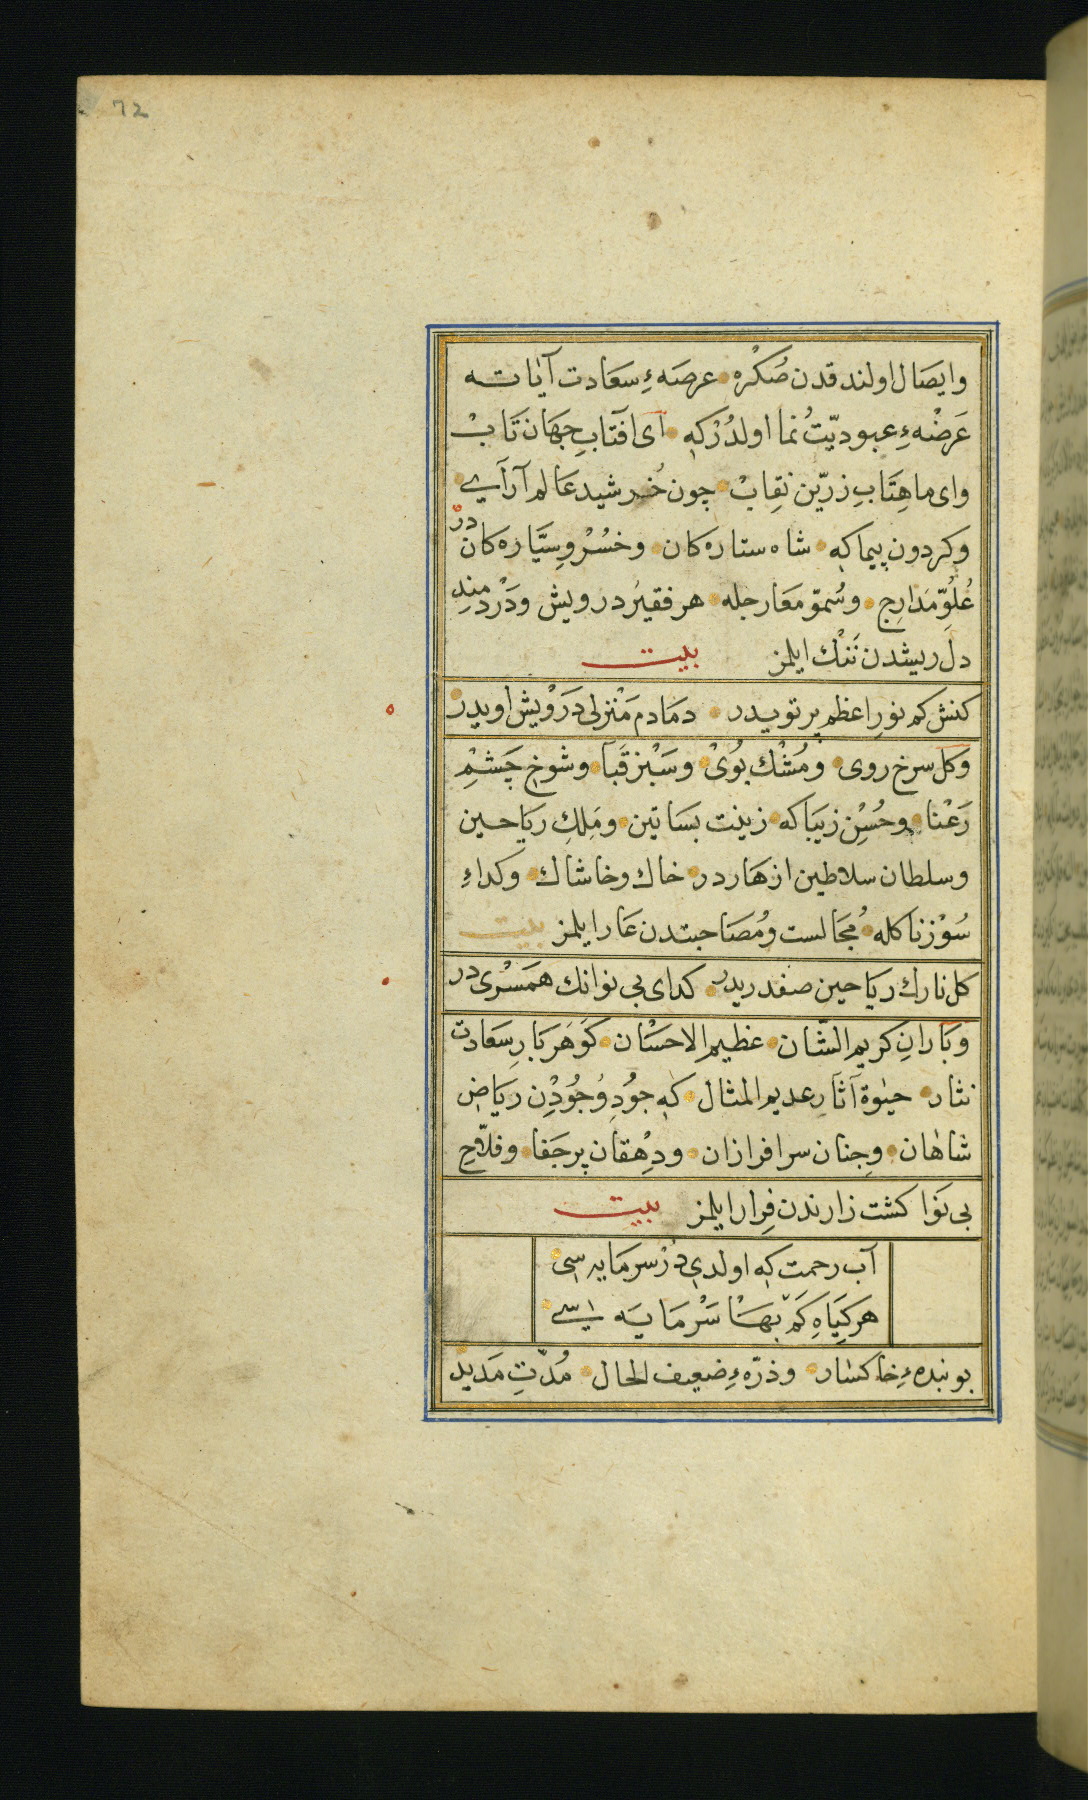 72
وایصال اولندقدن صکْره عرصهٔ سعادت آیاته
عَرضْهٔ عبودیّت نما اولدُرْکه ای افتابِ جهان تَابْ
وای ماهتَابِ زرّین نِقابْ چون خُرشید عالم آرای
وکردون پیماکه شاه ستارهکان وخسْروِ سیّارهکاندرْ
عُلُوِّ مَدارج وسُموّ مَعارجله هر فقیر درویش ودَرْدمندِ
دل ریشدن نَنْک ایلمز بیت
کنش کم نورِ اعظم پرتویدر دمَادم مَنْزلی دَرْویش اویدر
وکل سرخ روی ومُشْک بُویْ وسَبْز قَبَا وشوخ چَشْمِ
رَعْنا وحُسْنِ زیبَاکه زینت بسَاتین ومَلِکِ ریَاحین
وسلطان سلاطین ازهاردر خاك وخاشاك وکداءِ
سُوْزناکله مُجَالست ومُصَاحبتدن عَار ایلمز بیت
کل نارك ریَاحین صفدریدر کدای بی نوانك همَسْری در
وبَارانِ کریم الشّان عظیم الاحسَان کَوهَر بَارِ سعَادت
نثار حیٰوة آثار عدیم المثال که جُودِ وُجُودْن ریَاضِ
شاهَان وجِنان سرافرازان ودِهْقان پرجَفا وفلّاحِ
بی نَوا کشت زارندن فِرار ایلمز بیت
آب رحمت که اولدی دُرْ سرمَایه سی
هر کیَاهِ کَمْ بهَا سَرْمَایَه ایسی
بو بندهٔ خاکسار وذرّهٔ ضعیف الحال مُدّتِ مَدید